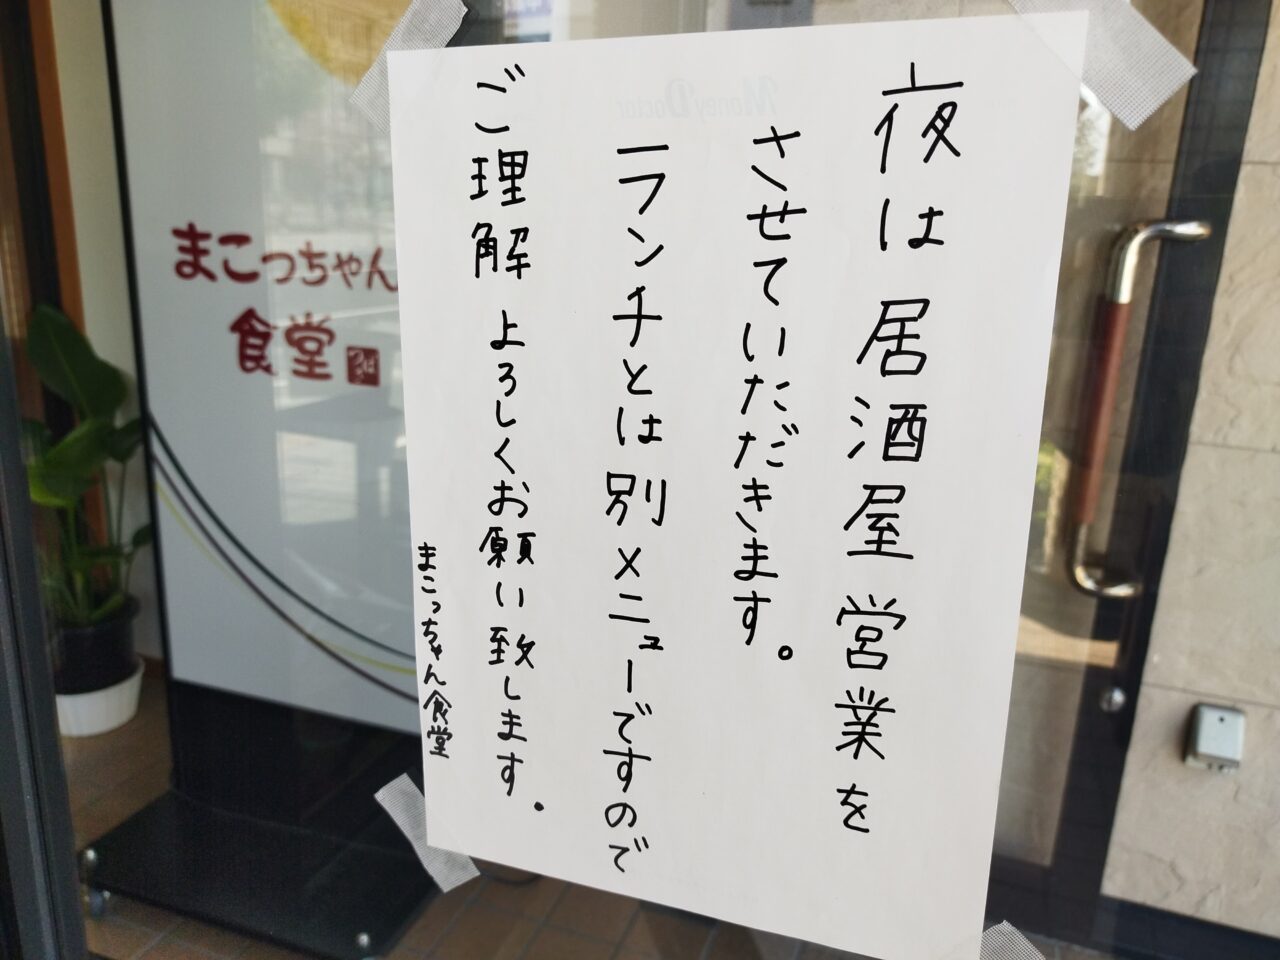 夜は居酒屋営業を
させていただきます。
ランチとは別メニューですので
ご理解よろしくお願い致します。
まこっちゃん食堂
まこっちゃん
食堂
Money Doctor